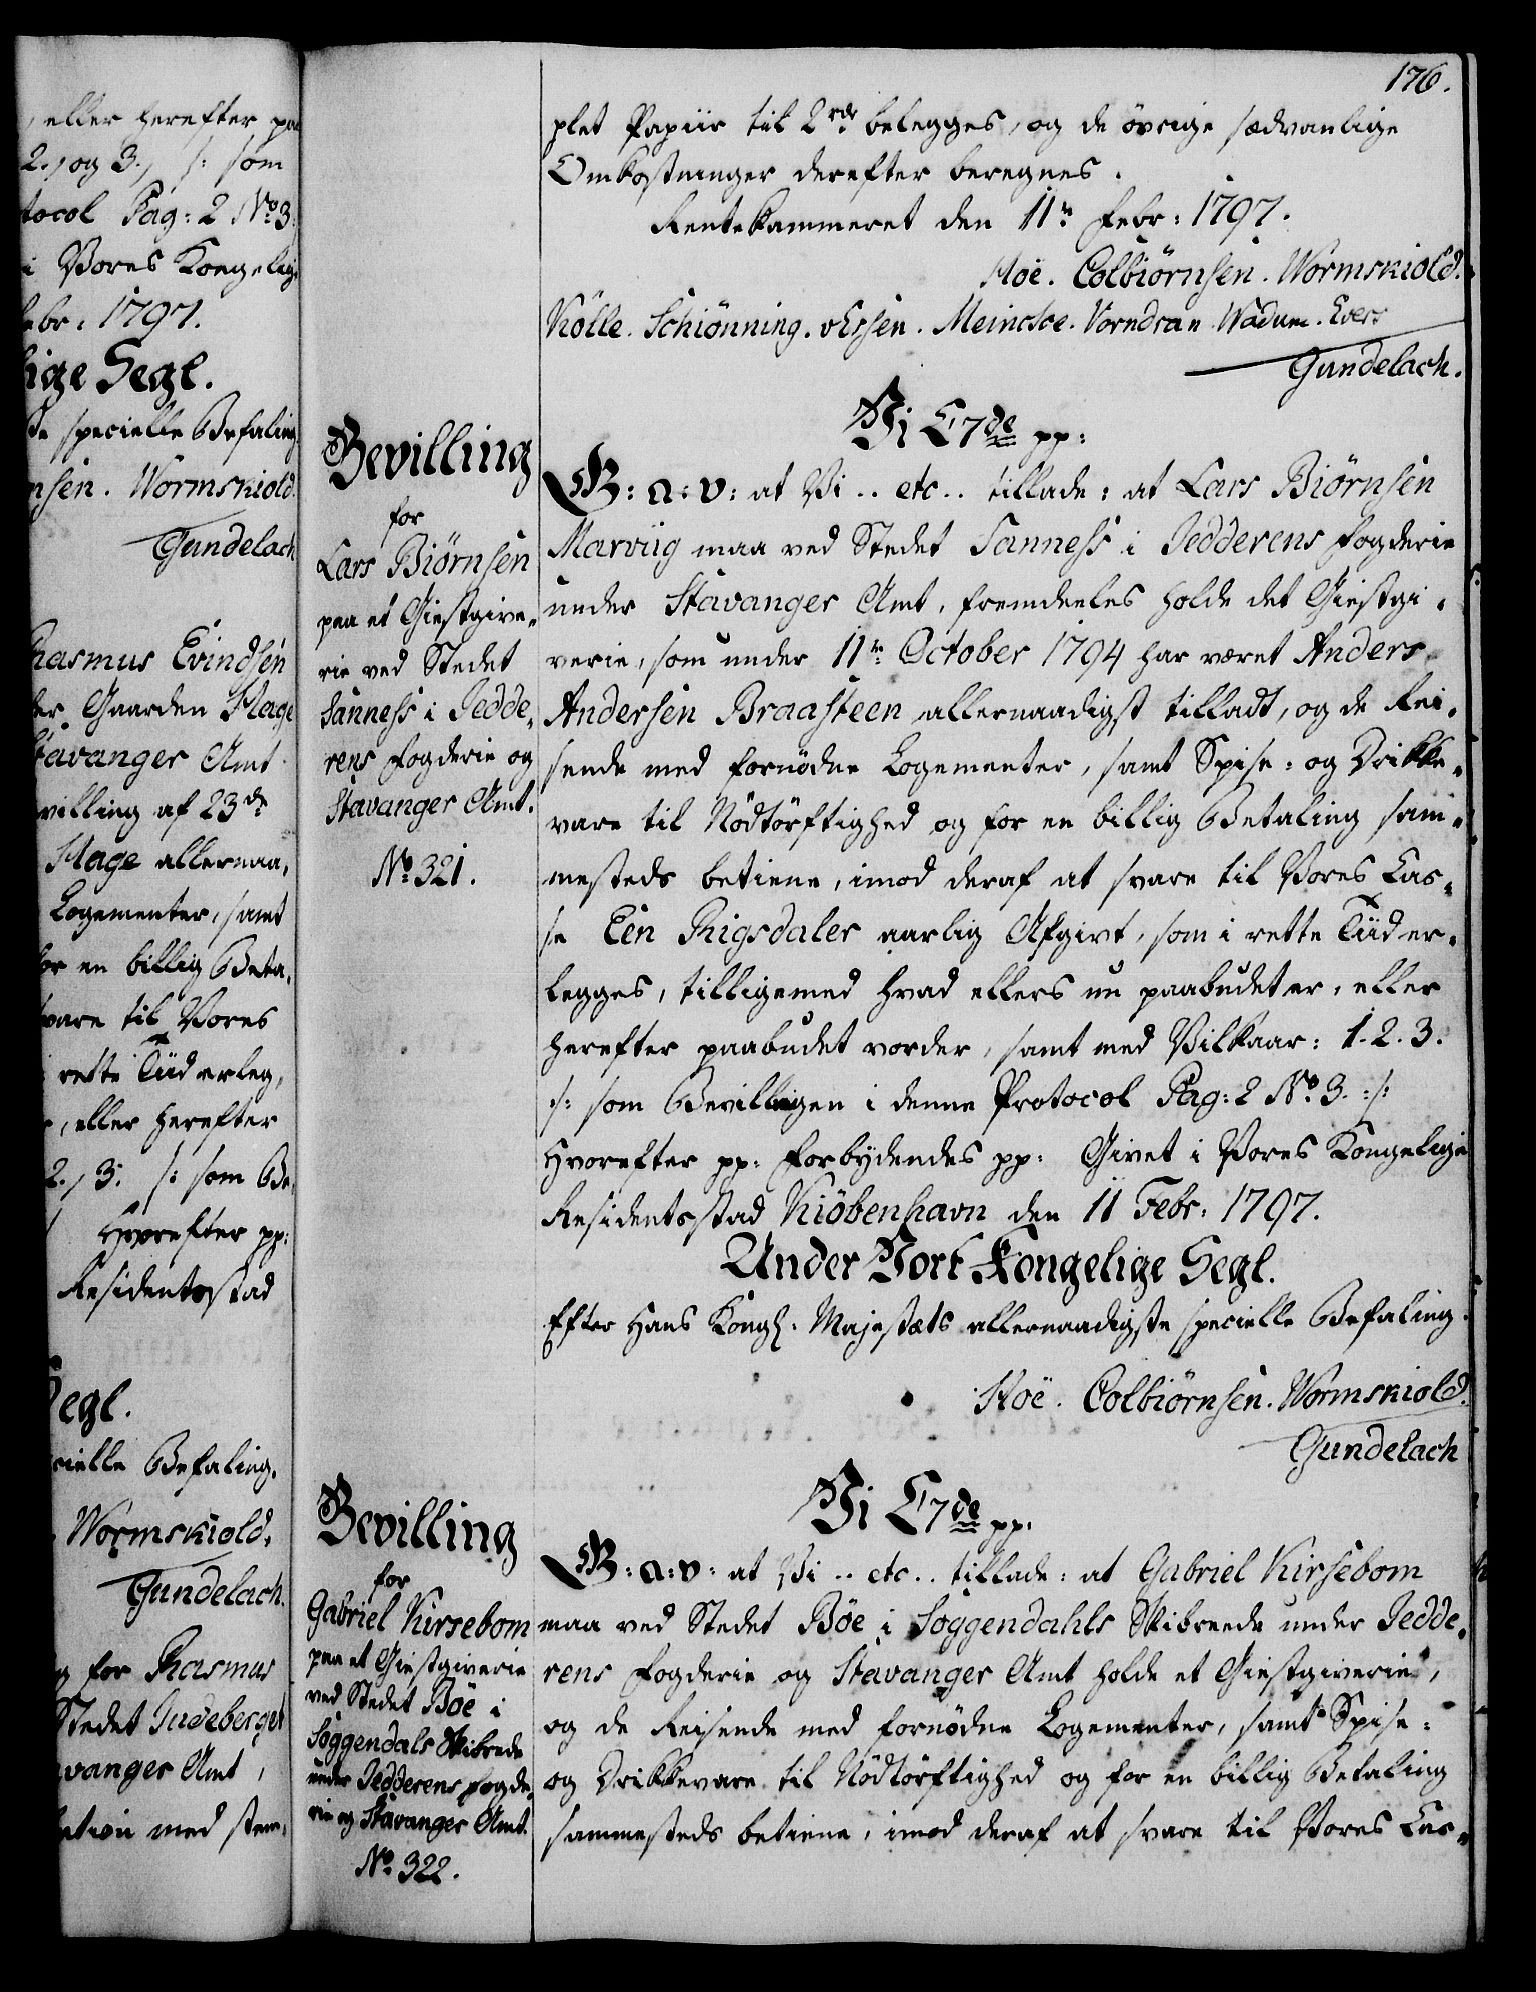 , eller herefter paa
2., og 3., /: som
tocol Pag: 2 No 3.
i Vores Kongelige
ebr: 1797.
lige Segl.
ste specielle Befaling.
nsen. Wormskiold.
Gundelach
Rasmus Evindsen
Gaarden Hage
Stavanger Amt
villing af 23de
Hage allernaa,
Logementer, samt
for en billig Beta,
svare til Vores
i rette Tiid erleg,
, eller herefter
2., 3: /: som Be,
Hvorefter pp:
Residentsstad
Segl.
cielle Befaling.
Wormskiold.
Gundelach.
g for Rasmus
Stedet Judeberget
avanger Amt,
med stem,
176.
plet Papiir til 2rdr belegges, og de övrige sædvanlige
Omkostninger derefter beregnes.
Rentekammeret den 11te Febr: 1797.
Hoë. Colbiörnsen. Wormskiold.
Kölle. Schiönning. vEssen. Meincke. Vorndran. Wadum. Evers
Gundelach.
Vi C7de pp:
Bevilling
for
Lars Biörnsen
paa et Giestgive-
rie ved Stedet
Sanness i Jedde,
rens Fogderie og
Stavanger Amt.
No 321.
G: a: v: at Vi .. etc .. tillade: at Lars Biörnsen
Marviig maa ved Stedet Sanness i Jedderens Fogderie
under Stavanger Amt, fremdeeles holde det Giestgi-
verie, som under 11te October 1794 har været Anders
Andersen Braasteen allernaadigst tilladt, og de Rei-
sende med fornödne Logementer, samt Spise- og Drikke-
vare til Nödtörftighed og for en billig Betaling sam-
mesteds betiene, imod deraf at svare til Vores Cas-
se Een Rigsdaler aarlig Afgivt, som i rette Tiid er-
legges, tilligemed hvad ellers nu paabudet er, eller
herefter paabudet vorder, samt med Vilkaar: 1. 2. 3.
/: som Bevillingen i denne Protocol Pag: 2 No 3. :/
Hvorefter pp: Forbydendes pp: Givet i Vores Kongelige
Residentsstad Kiöbenhavn den 11 Febr: 1797.
Under Vort Kongelige Segl.
Efter Hans Kongl: Majestæts allernaadigste specielle Befaling.
Hoë. Colbiörnsen. Wormskiold.
Gundelach
Vi C7de pp.
Bevilling
for
Gabriel Kirsebom
paa et Giestgiverie
ved Stedet Böe i
Soggendals Skibrede
under Jedderens Fogde,
rie og Stavanger Amt.
No 322.
G: a: v: at Vi .. etc .. tillade: at Gabriel Kirsebom
maa ved Stedet Böe i Soggendahls Skibreede under Jedde,
rens Fogderie og Stavanger Amt holde et Giestgiverie,
og de Reisende med fornödne Logementer, samt Spise-
og Drikkevare til Nödtörftighed og for en billig Betaling
sammesteds betiene, imod deraf at svare til Vores Cas-